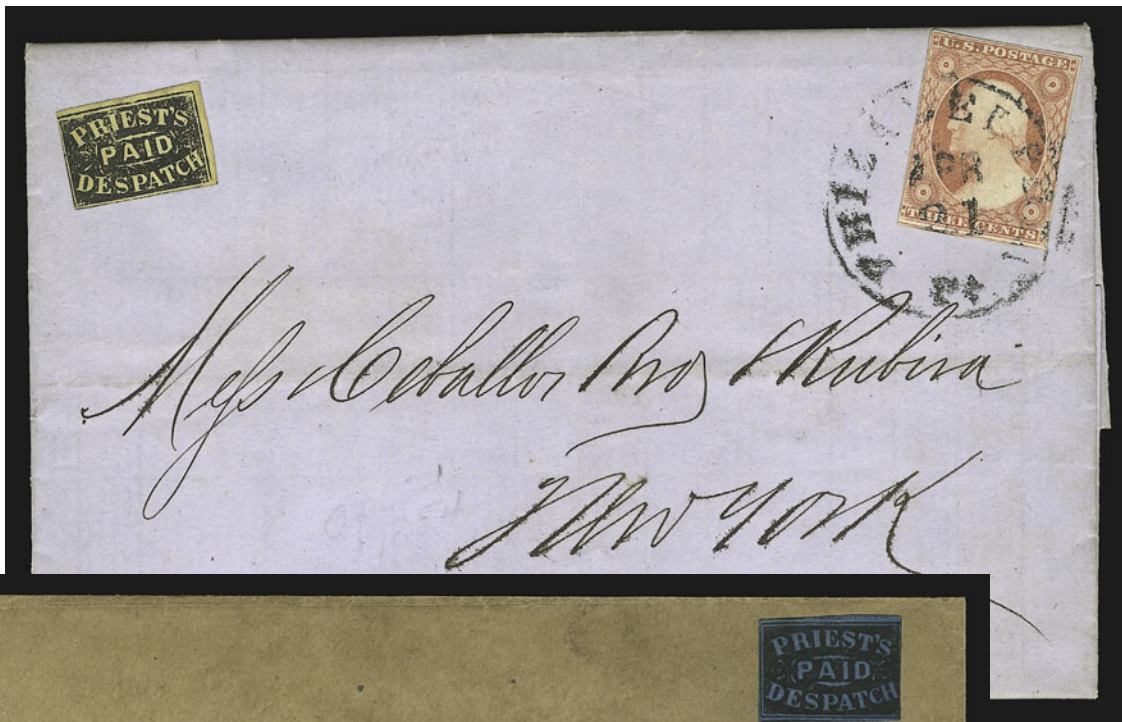 PRIEST'S
PAID
DESPATCH
U.S. POSTAGE
THREE CENTS
APR
21
Pa
Mess Ceballos Bros & Rubira
New York
PRIEST'S
PAID
DESPATCH